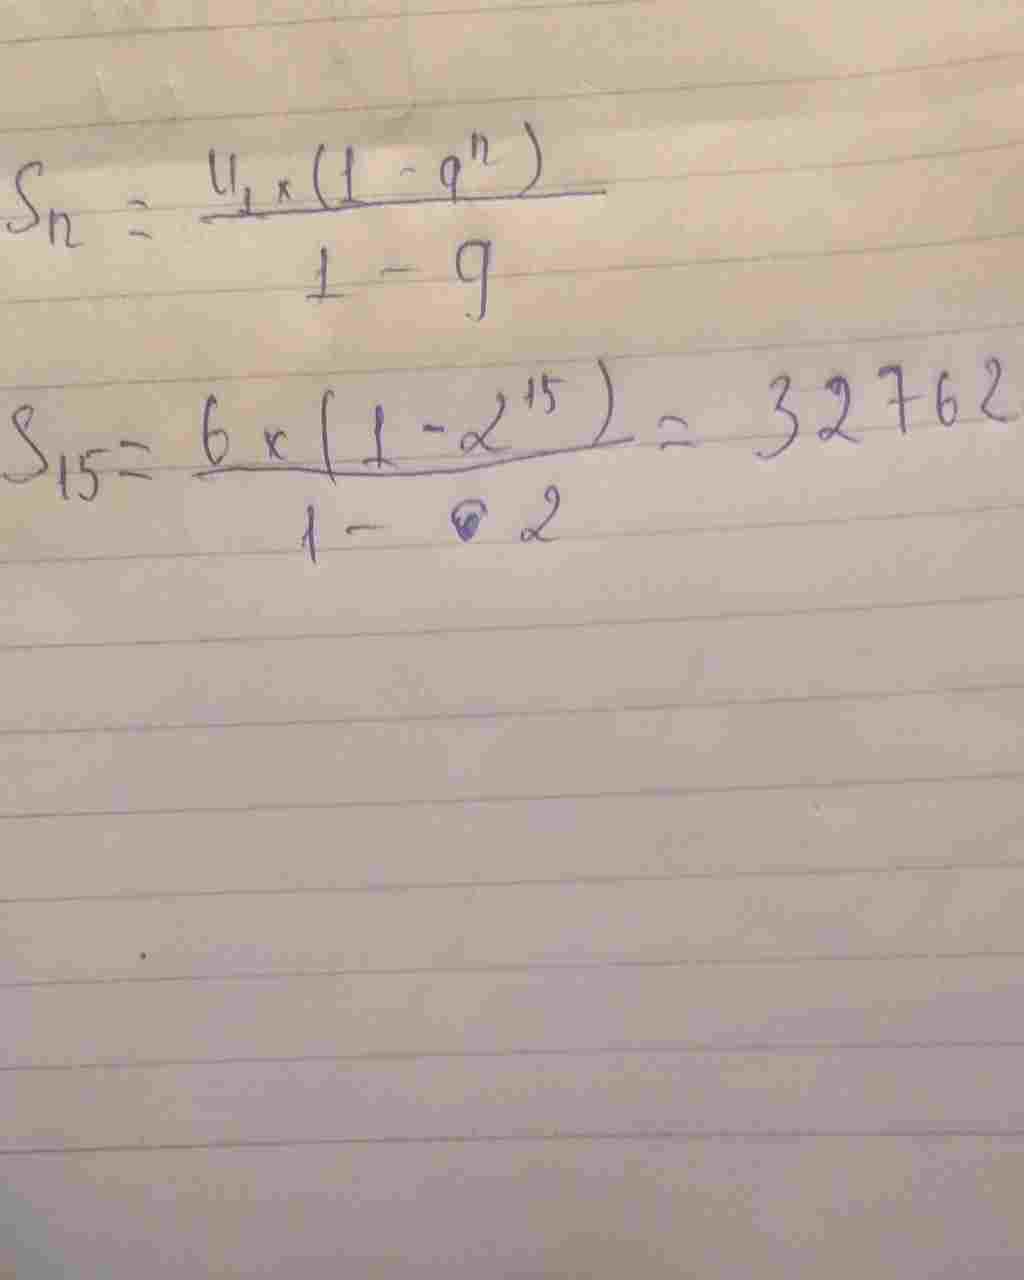 Sₙ = U₁ × (1 - qⁿ) / 1 - q
S₁₅ = 6 × (1 - 2¹⁵) / 1 - 2 = 32762